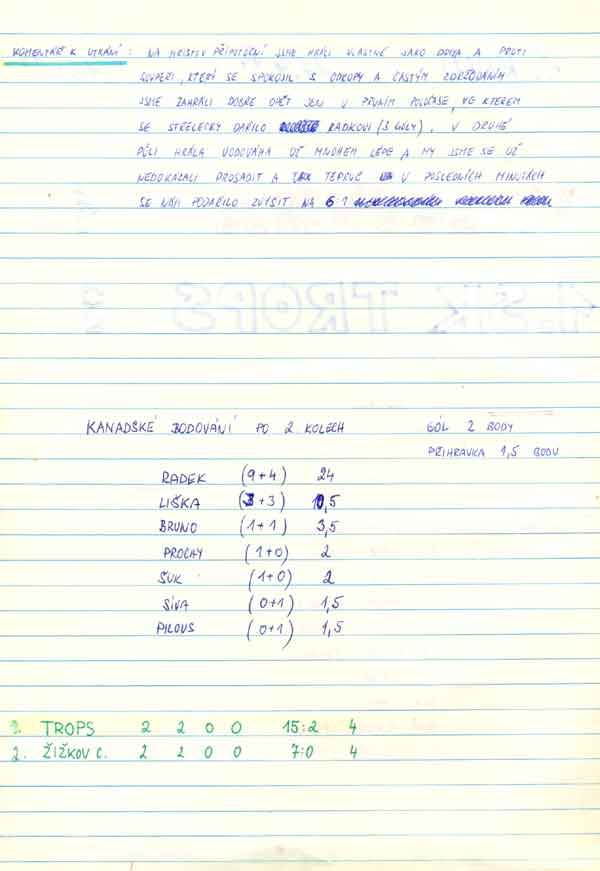 KOMENTÁŘ K UTKÁNÍ : NA HŘIŠTI V PŘÍPOTOČNÍ JSME HRÁLI VLASTNĚ JAKO DOMA A PROTI
SOUPEŘI, KTERÝ SE SPOKOJIL S ODKOPY A ČASTÝM ZDRŽOVÁNÍM
JSME ZAHRÁLI DOBŘE OPĚT JEN V PRVNÍM POLOČASE, VE KTERÉM
SE STŘELECKY DAŘILO RADKOVI (3 GÓLY). V DRUHÉ
PŮLI HRÁLA VODOVÁHA UŽ MNOHEM LÉPE A MY JSME SE UŽ
NEDOKÁZALI PROSADIT A TEPRVE V POSLEDNÍCH MINUTÁCH
SE NÁM PODAŘILO ZVÝŠIT NA 6:1
1.SK TROPS
KANADSKÉ BODOVÁNÍ PO 2 KOLECH
GÓL 2 BODY
PŘIHRÁVKA 1,5 BODU
RADEK (9+4) 24
LIŠKA (3+3) 10,5
BRUNO (1+1) 3,5
PROCHY (1+0) 2
ŠUK (1+0) 2
SÍVA (0+1) 1,5
PILOUS (0+1) 1,5
1. TROPS 2 2 0 0 15:2 4
2. ŽIŽKOV C. 2 2 0 0 7:0 4